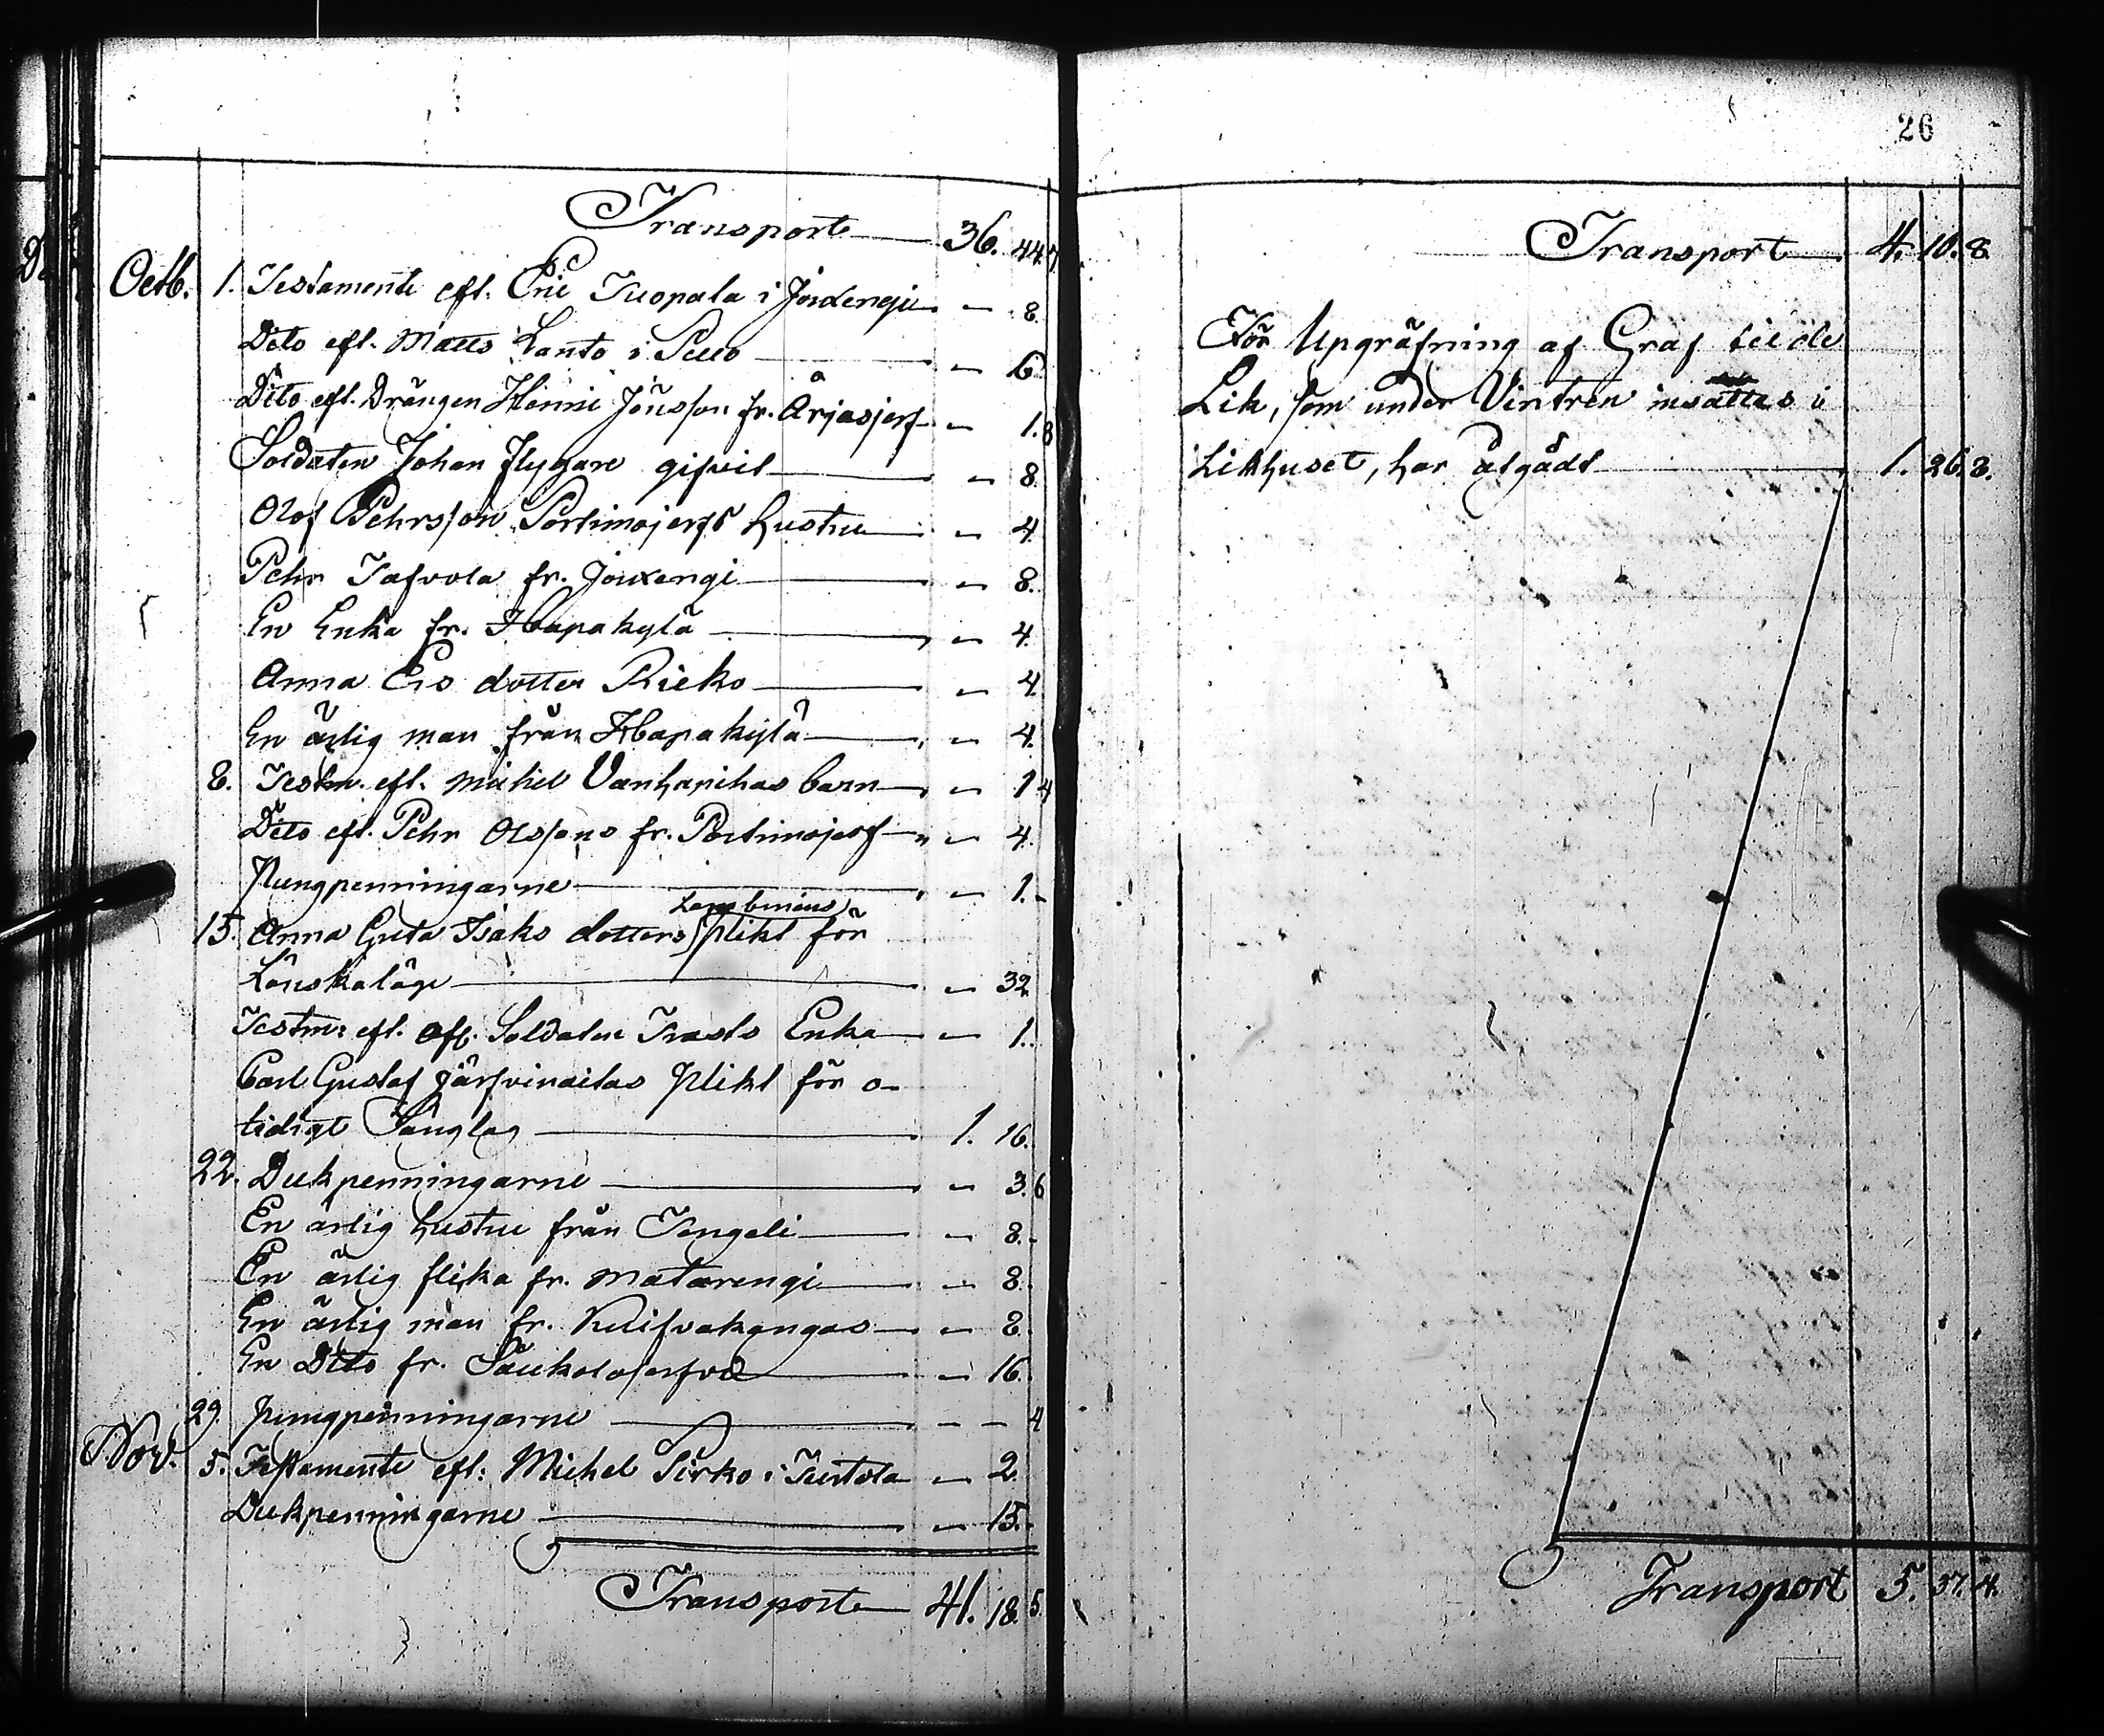 Transport 36. 44.7
Octb. 1. Testamente eft. Eric Kuopala i Juoxengi – 8.
Dito eft. Matts Lanto i Pello – 6.
Dito eft. Drängen Henric Jönsson fr. Arjasjerf – 1.8
Soldaten Johan Flygare gifvit – 8.
Olof Pehrsson Portimojerfs hustru – 4.
Pehr Tafvola fr. Jouxengi – 8.
En Enka fr. Hapakylä – 4.
Anna Ers dotter Rieko – 4.
En ärlig man från Hapakylä – 4.
8. Testm. eft. Michel Vanhapihas barn – 1 4
Dito eft. Pehr Olssons fr. Portimojerf – 4.
Pungpenningarne – 1. –
Lambinens
15. Anna Greta Isaks dotters plikt för
Lönskaläge – 32
Testm: eft. Afl. Soldaten Trasts Enka – 1.
Carl Gustaf Järfvinaitas plikt för o-
tidigt Sänglag 1. 16.
22. Dukpenningarne – 3. 6
En ärlig hustru från Tengeli – 8. –
En ärlig flicka fr. Matarengi – 8.
En ärlig man fr. Kuifvakangas – 8.
En Dito fr. Saukolojerfvi – 16.
29. Pungpenningarne – – 4
Nov. 5. Testamente eft: Michel Pirko i Turtola – 2.
Dukpenningarne – 15. –
Transport 41. 18. 5.
26
Transport 4. 10. 8.
För Upgräfning af Graf till de
Lik, som under Vintren insattes i
Likhuset, har åtgådt 1. 26. 8.
Transport 5. 37. 4.